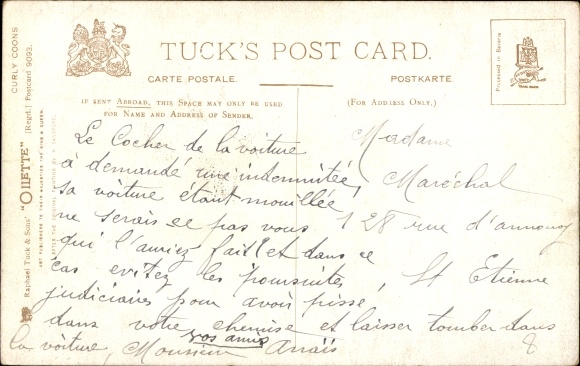 TUCK'S POST CARD.
CARTE POSTALE.
POSTKARTE.
IF SENT ABROAD, THIS SPACE MAY ONLY BE USED
FOR NAME AND ADDRESS OF SENDER.
(FOR ADDRESS ONLY.)
CURLY COONS
Raphael Tuck & Sons' "OILETTE" [Regd.] Postcard 9093.
ART PUBLISHERS TO THEIR MAJESTIES THE KING & QUEEN.
Processed in Bavaria
TRADE MARK
Le Cocher de la voiture
à demandé une indemnitée,
sa voiture étant mouillée
ne serais ce pas vous
qui l'auriez fait! et dans ce
cas evitez les poursuites,
judiciaires pour avoir pissé
dans votre chemise et laisser tomber dans
la voiture, Monsieur vos amis Anaïs
Madame
Maréchal
128 rue d'annonay
St Etienne
8